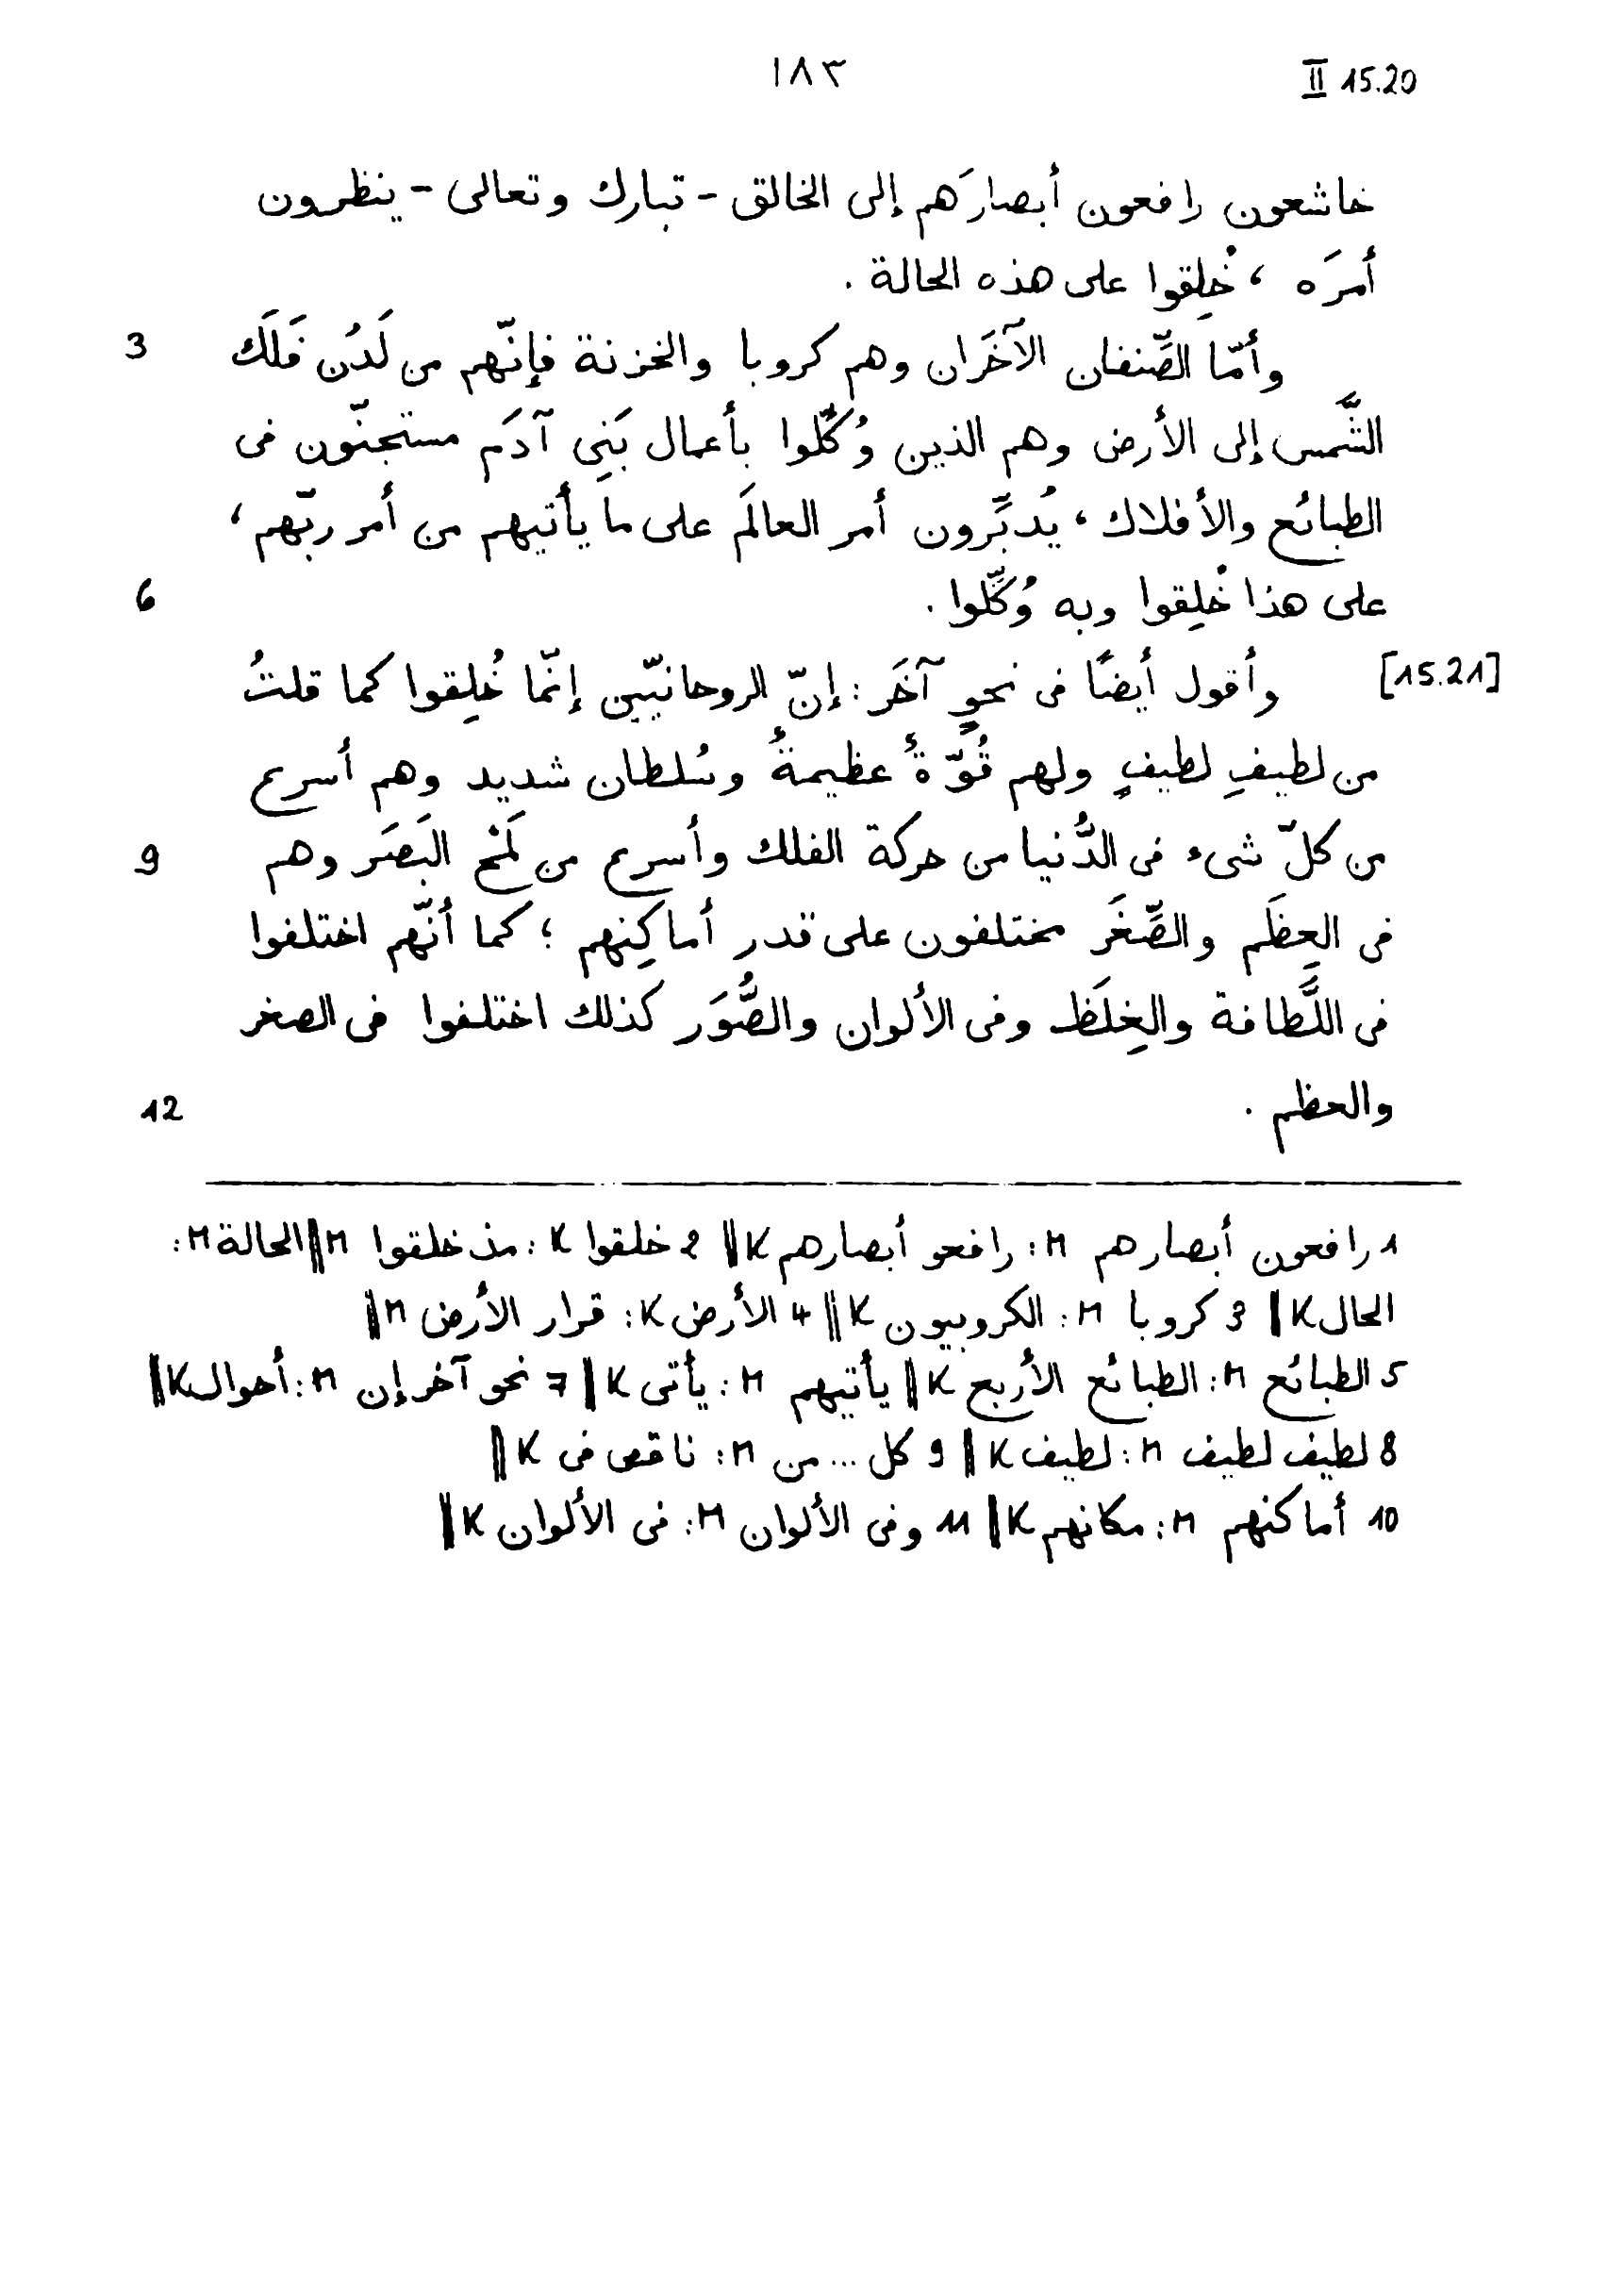 ١٨٣ II 15.20
خاشعون رافعون أبصارَهم إلى الخالق - تبارك وتعالى - ينظرون
أمرَه ، خُلِقوا على هذه الحالة .
وأمّا الصِّنفان الآخَران وهم كروبا والخزنة فإنّهم من لَدُن فَلَك 3
الشَّمس إلى الأرض وهم الذين وُكِّلوا بأعمال بَنِي آدَم مستجنّون فى
الطبائع والأفلاك ، يُدبِّرون أمر العالَم على ما يأتيهم من أمر ربّهم ،
على هذا خُلِقوا وبه وُكِّلوا . 6
[15.21] وأقول أيضًا فى نحوٍ آخَر : إنّ الروحانيّين إنّما خُلِقوا كما قلتُ
من لطيفِ لطيفٍ ولهم قُوّةٌ عظيمةٌ وسُلطان شديد وهم أسرع
من كلّ شىء فى الدُّنيا من حركة الفلك وأسرع من لَمْح البَصَر وهم 9
فى العِظَم والصِّغَر مختلفون على قدر أماكِنِهم ؛ كما أنّهم اختلفوا
فى اللَّطافة والغِلَظ وفى الألوان والصُّوَر كذلك اختلفوا فى الصغر
والعظم . 12
1 رافعون أبصارهم M : رافعو أبصارهم K || 2 خلقوا K : مذ خلقوا M || الحالة M :
الحال K || 3 كروبا M : الكروبيون K || 4 الأرض K : قرار الأرض M ||
5 الطبائع M : الطبائع الأربع K || يأتيهم M : يأتى K || 7 نحو آخر إن M : أحوال K ||
8 لطيف لطيف M : لطيف K || 9 كل ... من M : ناقص فى K ||
10 أماكنهم M : مكانهم K || 11 وفى الألوان M : فى الألوان K ||